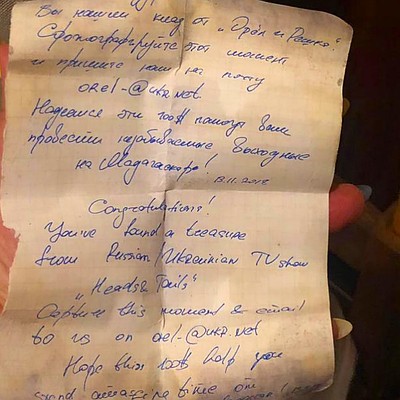 Вы нашли клад от „Орёл и Решка“.
Сфотографируйте этот момент
и пришлите нам на почту
orel-@ukr.net.
Надеемся эти 100$ помогут вам
провести незабываемые выходные
на Мадагаскаре!
13.11.2018
Congratulations!
You've found a treasure
from Russian Ukrainian TV show
„Heads & Tails“
Capture this moment & email
to us on orel-@ukr.net
Hope this 100$ help you
spend amazing time on